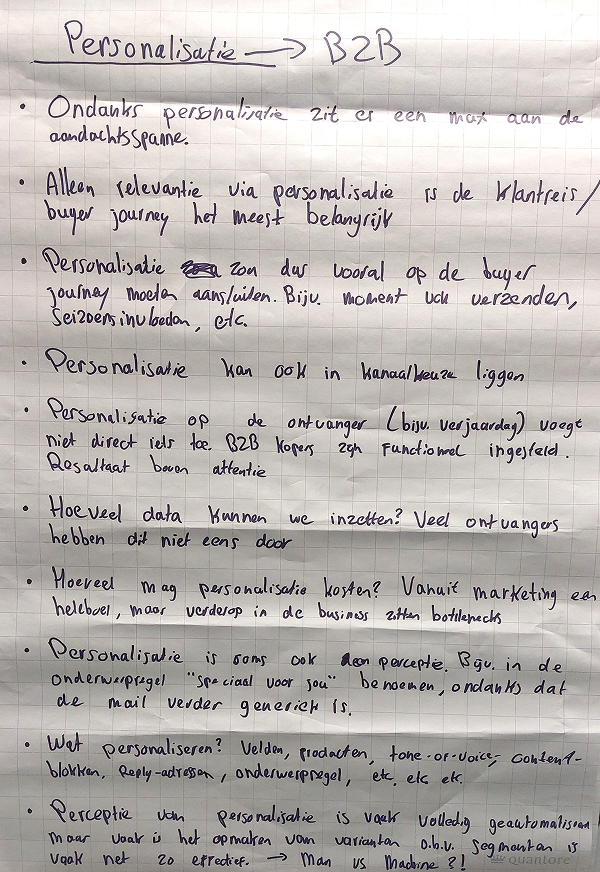 Personalisatie → B2B
• Ondanks personalisatie zit er een max aan de
aandachtsspanne.
• Alleen relevantie via personalisatie is de klantreis/
buyer journey het meest belangrijk
• Personalisatie zou dus vooral op de buyer
journey moeten aansluiten. Bijv. moment van verzenden,
Seizoensinvloeden, etc.
• Personalisatie kan ook in kanaalkeuze liggen
• Personalisatie op de ontvanger (bijv. verjaardag) voegt
niet direct iets toe. B2B kopers zijn functioneel ingesteld.
Resultaat boven attentie
• Hoeveel data kunnen we inzetten? Veel ontvangers
hebben dit niet eens door
• Hoeveel mag personalisatie kosten? Vanuit marketing een
heleboel, maar verderop in de business zitten bottlenecks
• Personalisatie is soms ook een perceptie. Bijv. in de
onderwerpregel "speciaal voor jou" benoemen, ondanks dat
de mail verder generiek is.
• Wat personaliseren? Velden, producten, tone-of-voice, content-
blokken, Reply-adressen, onderwerpregel, etc, etc etc.
• Perceptie van personalisatie is vaak volledig geautomatiseerd
maar vaak is het opmaken van varianten o.b.v. segmenten is
vaak net zo effectief. → Man vs Machine ?!
quantore